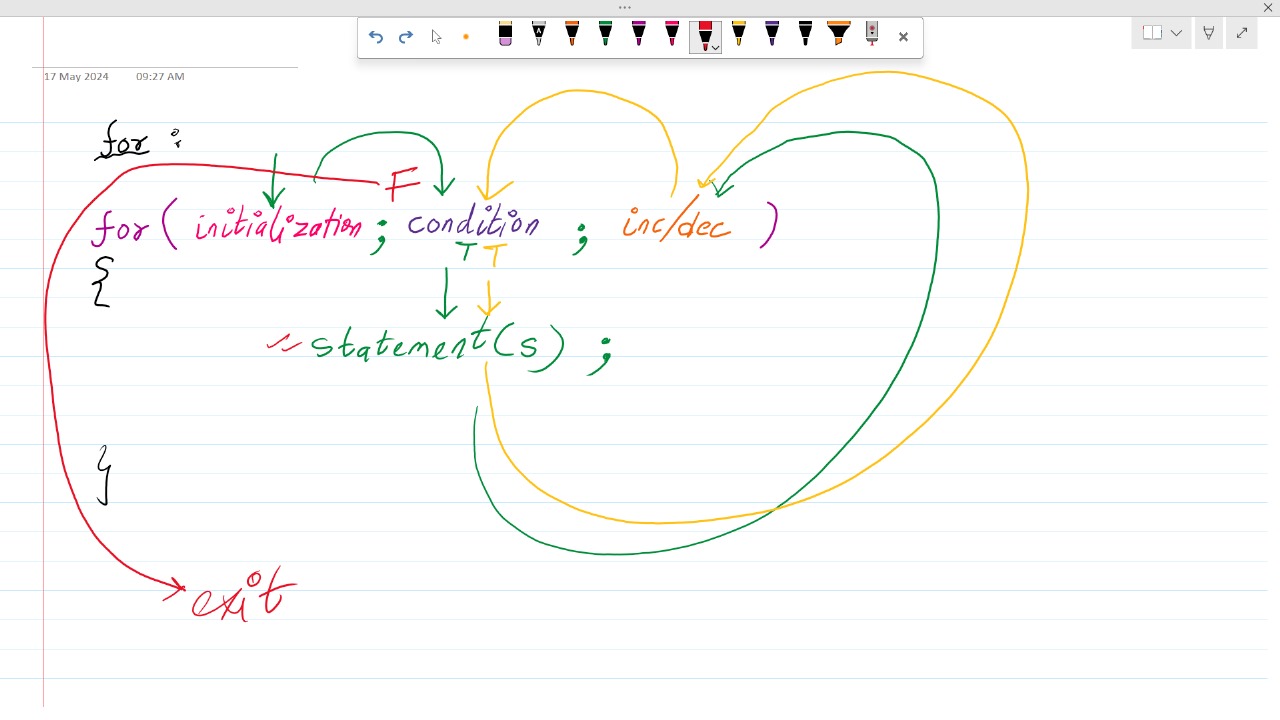 17 May 2024 09:27 AM
for :
F
for( initialization ; condition ; inc/dec )
T T
{
statement(s) ;
}
exit